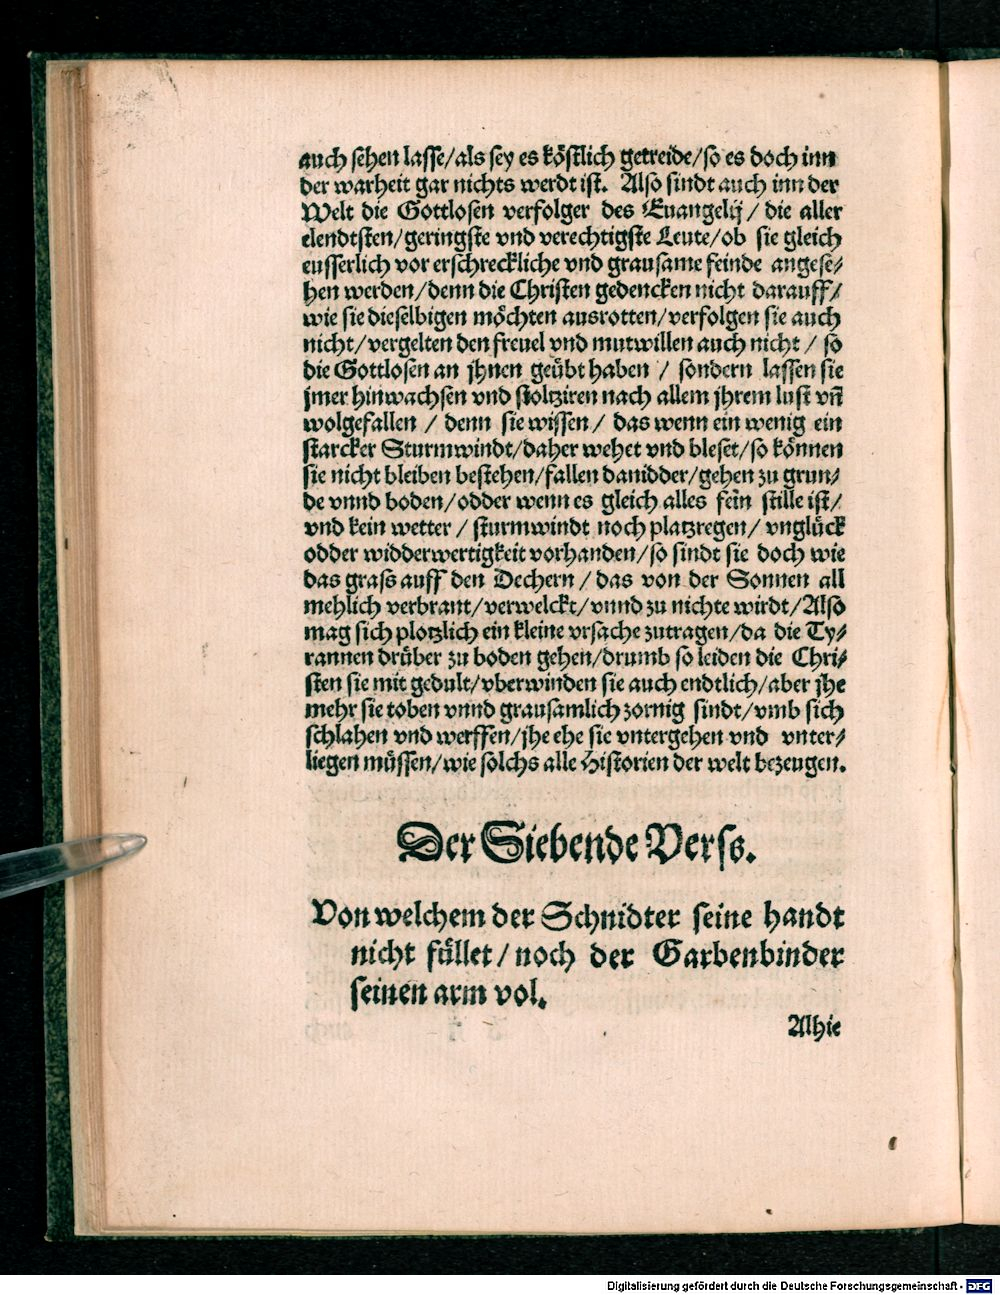 auch sehen lasse/als sey es köstlich getreide/so es doch inn
der warheit gar nichts werdt ist. Also sindt auch inn der
Welt die Gottlosen verfolger des Euangelij/ die aller
elendtsten/geringste vnd verechtigste Leute/ob sie gleich
eusserlich vor erschreckliche vnd grausame feinde angese/
hen werden/denn die Christen gedencken nicht darauff/
wie sie dieselbigen möchten ausrotten/verfolgen sie auch
nicht/vergelten den freuel vnd mutwillen auch nicht / so
die Gottlosen an jhnen geübt haben / sondern lassen sie
jmer hinwachsen vnd stoltziren nach allem jhrem lust vn̄
wolgefallen / denn sie wissen / das wenn ein wenig ein
starcker Sturmwindt/daher wehet vnd bleset/so können
sie nicht bleiben bestehen/fallen danidder/gehen zu grun/
de vnnd boden/odder wenn es gleich alles fein stille ist/
vnd kein wetter / sturmwindt noch platzregen/ vnglück
odder widderwertigkeit vorhanden/so sindt sie doch wie
das grass auff den Dechern / das von der Sonnen all
mehlich verbrant/verwelckt/vnnd zu nichte wirdt/Also
mag sich plotzlich ein kleine vrsache zutragen/da die Ty/
rannen drüber zu boden gehen/drumb so leiden die Chri/
sten sie mit gedult/vberwinden sie auch endtlich/aber jhe
mehr sie toben vnnd grausamlich zornig sindt/vmb sich
schlahen vnd werffen/jhe ehe sie vntergehen vnd vnter/
liegen müssen/wie solchs alle Historien der welt bezeugen.
Der Siebende Verss.
Von welchem der Schnidter seine handt
nicht füllet/noch der Garbenbinder
seinen arm vol.
Alhie
Digitalisierung gefördert durch die Deutsche Forschungsgemeinschaft - DFG